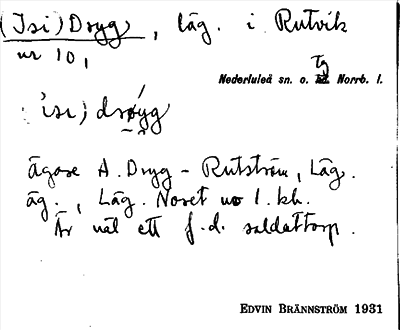 (Isi) Dryg, läg. i Rutvik
nr 10,
Nederluleå sn. o. tg Norrb. l.
isi) drýyg
ägare A. Dryg - Rutström, Läg.
äg., Läg. Noset no 1. kh.
Är väl ett f.d. soldattorp.
EDVIN BRÄNNSTRÖM 1931